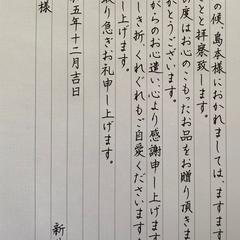 の候 島本様におかれましては、ますます
ことと拝察致します。
の度はお心のこもったお品をお贈り頂きま
がとうございます。
がらのお心遣い、心より感謝申し上げます
しき折、くれぐれもご自愛くださいます
し上げます。
取り急ぎお礼申し上げます。
五年十二月吉日
新
様